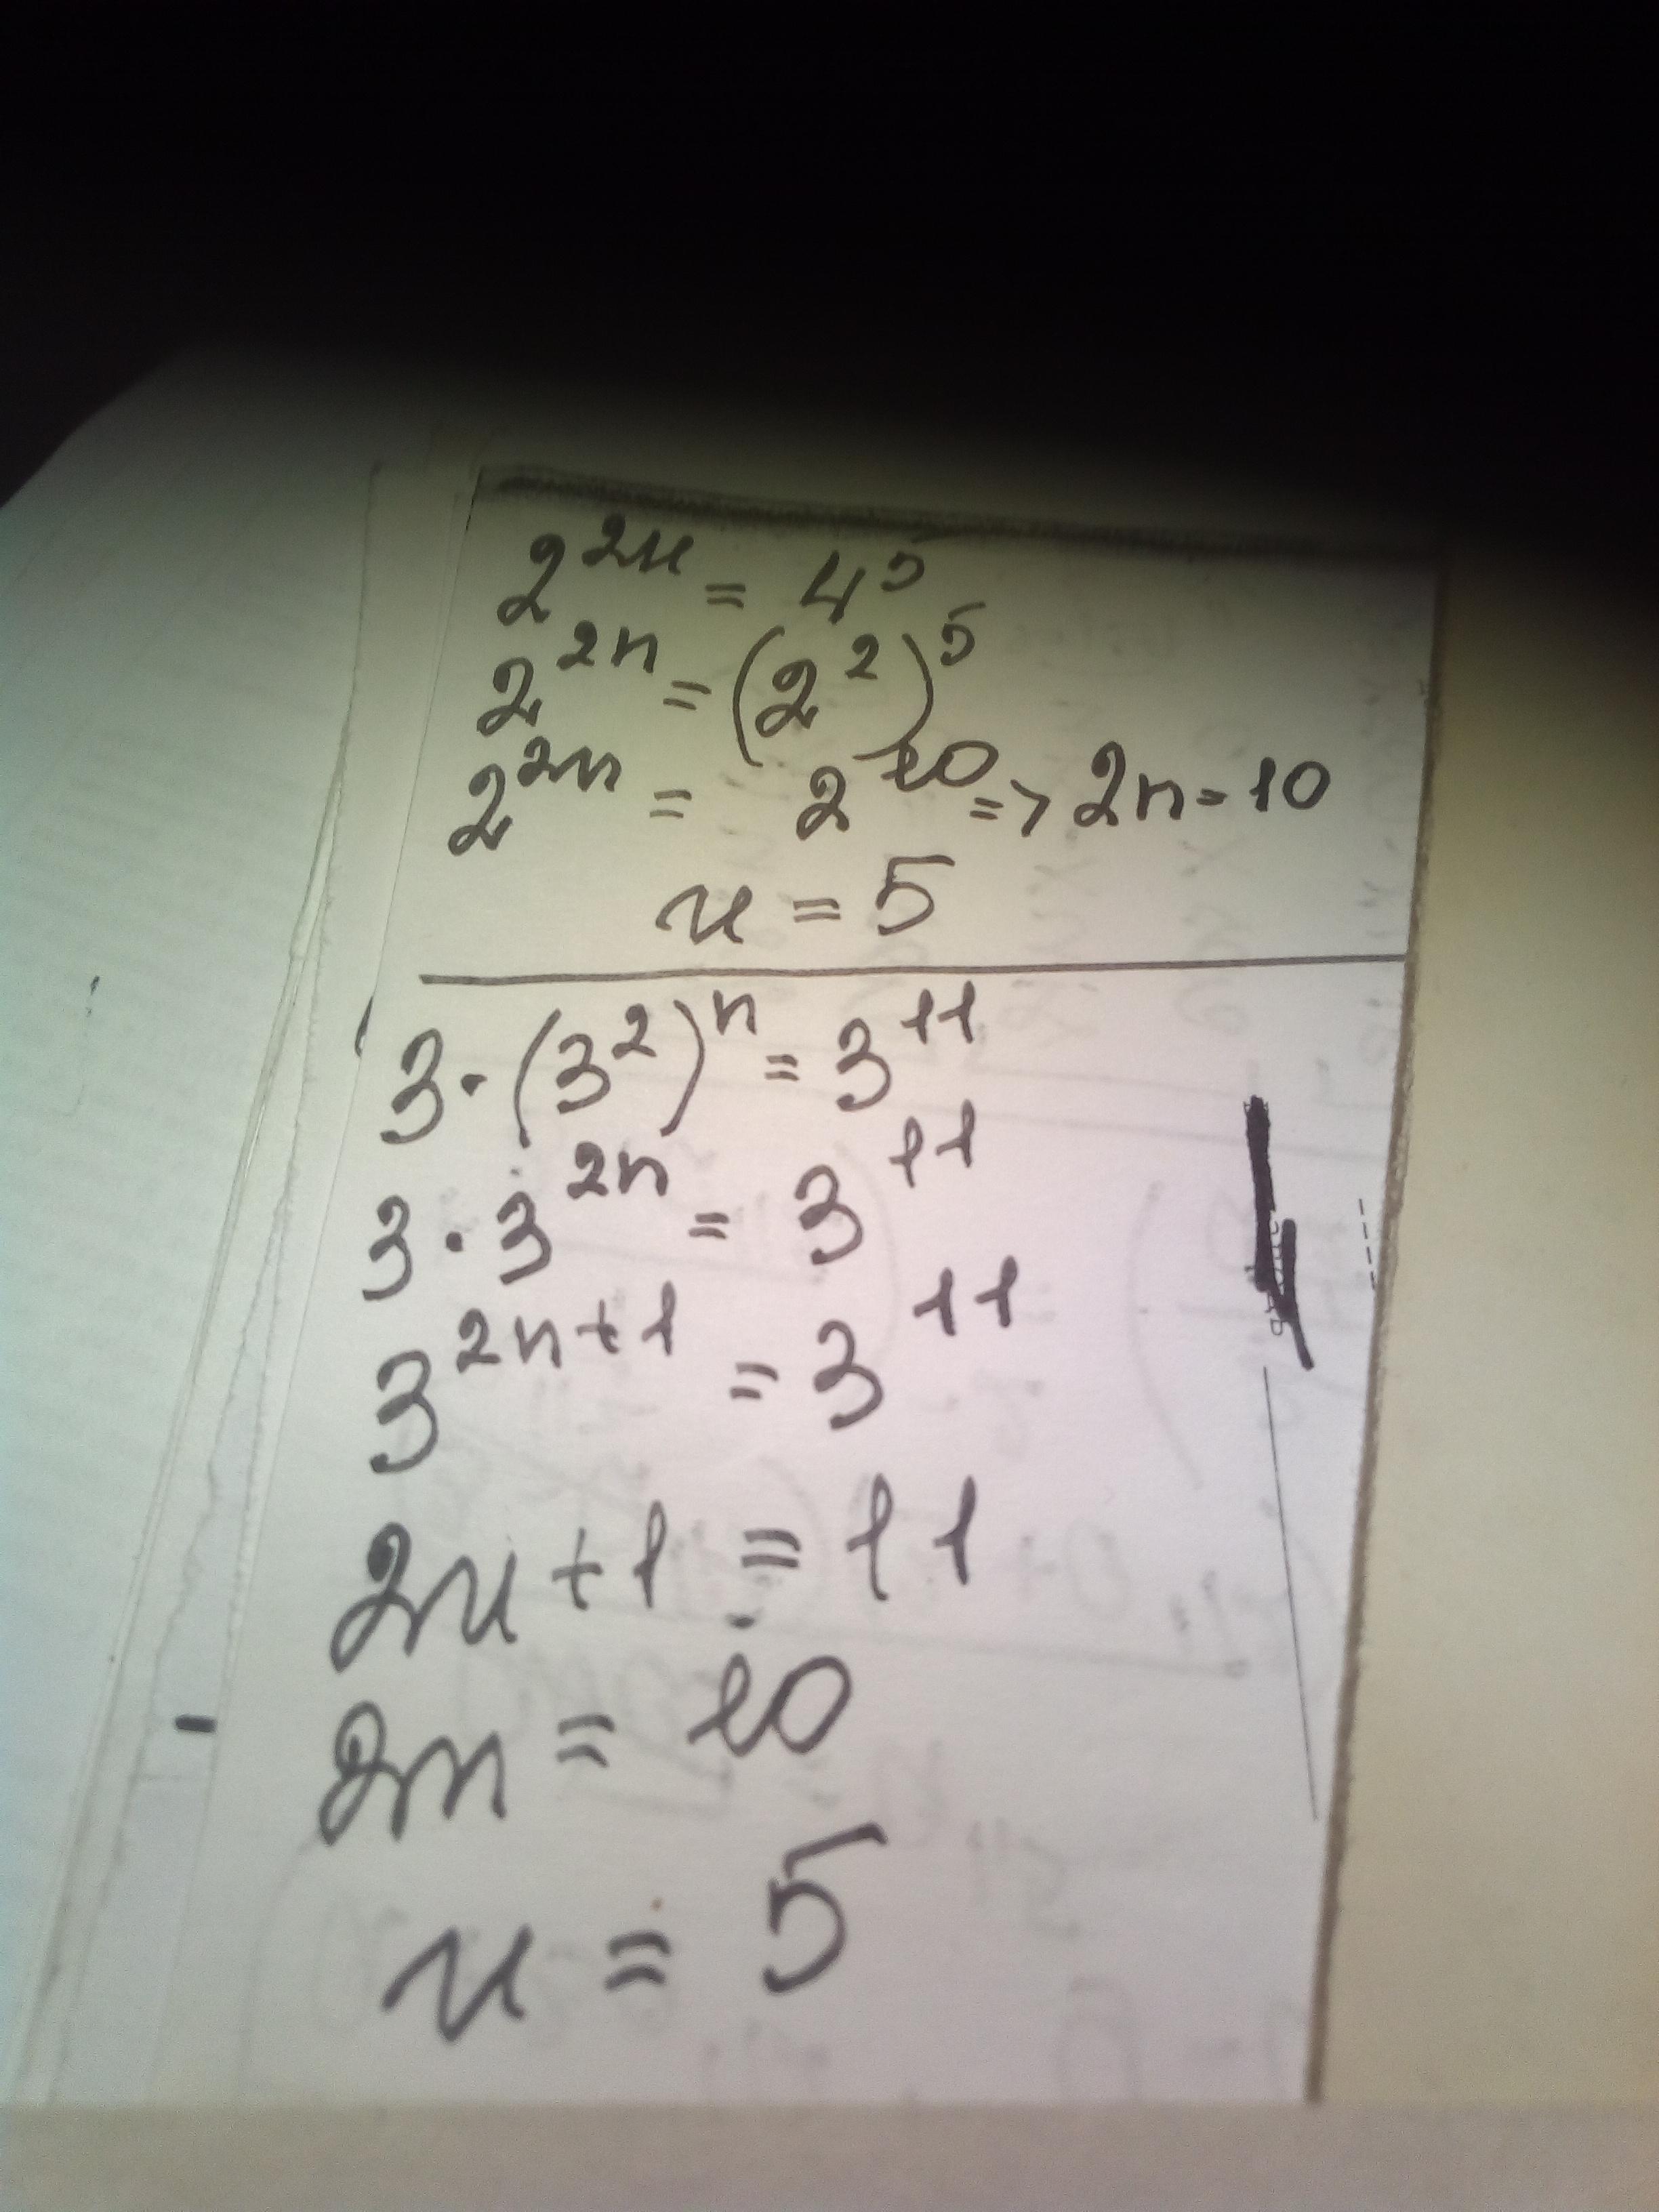 2^{2n} = 4^5
2^{2n} = (2^2)^5
2^{2n} = 2^{10} => 2n = 10
n = 5
3 · (3^2)^n = 3^{11}
3 · 3^{2n} = 3^{11}
3^{2n+1} = 3^{11}
2n + 1 = 11
2n = 10
n = 5